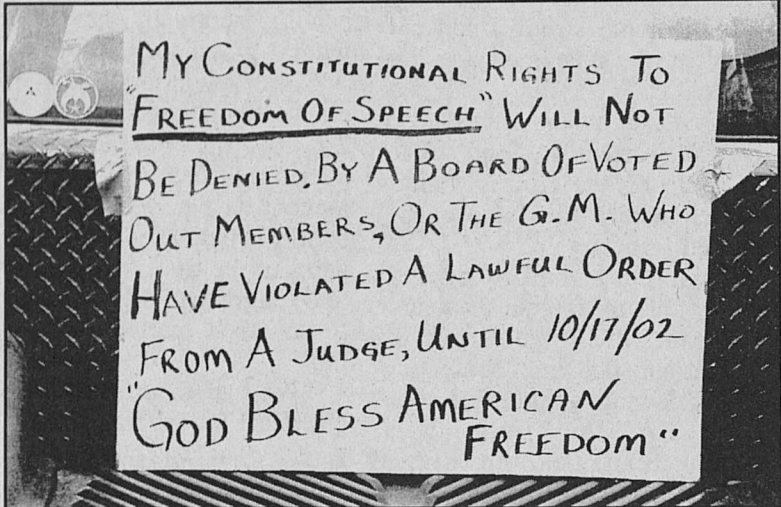 My Constitutional Rights To
"Freedom Of Speech" Will Not
Be Denied. By A Board Of Voted
Out Members, Or The G.M. Who
Have Violated A Lawful Order
From A Judge, Until 10/17/02
"God Bless American
Freedom"